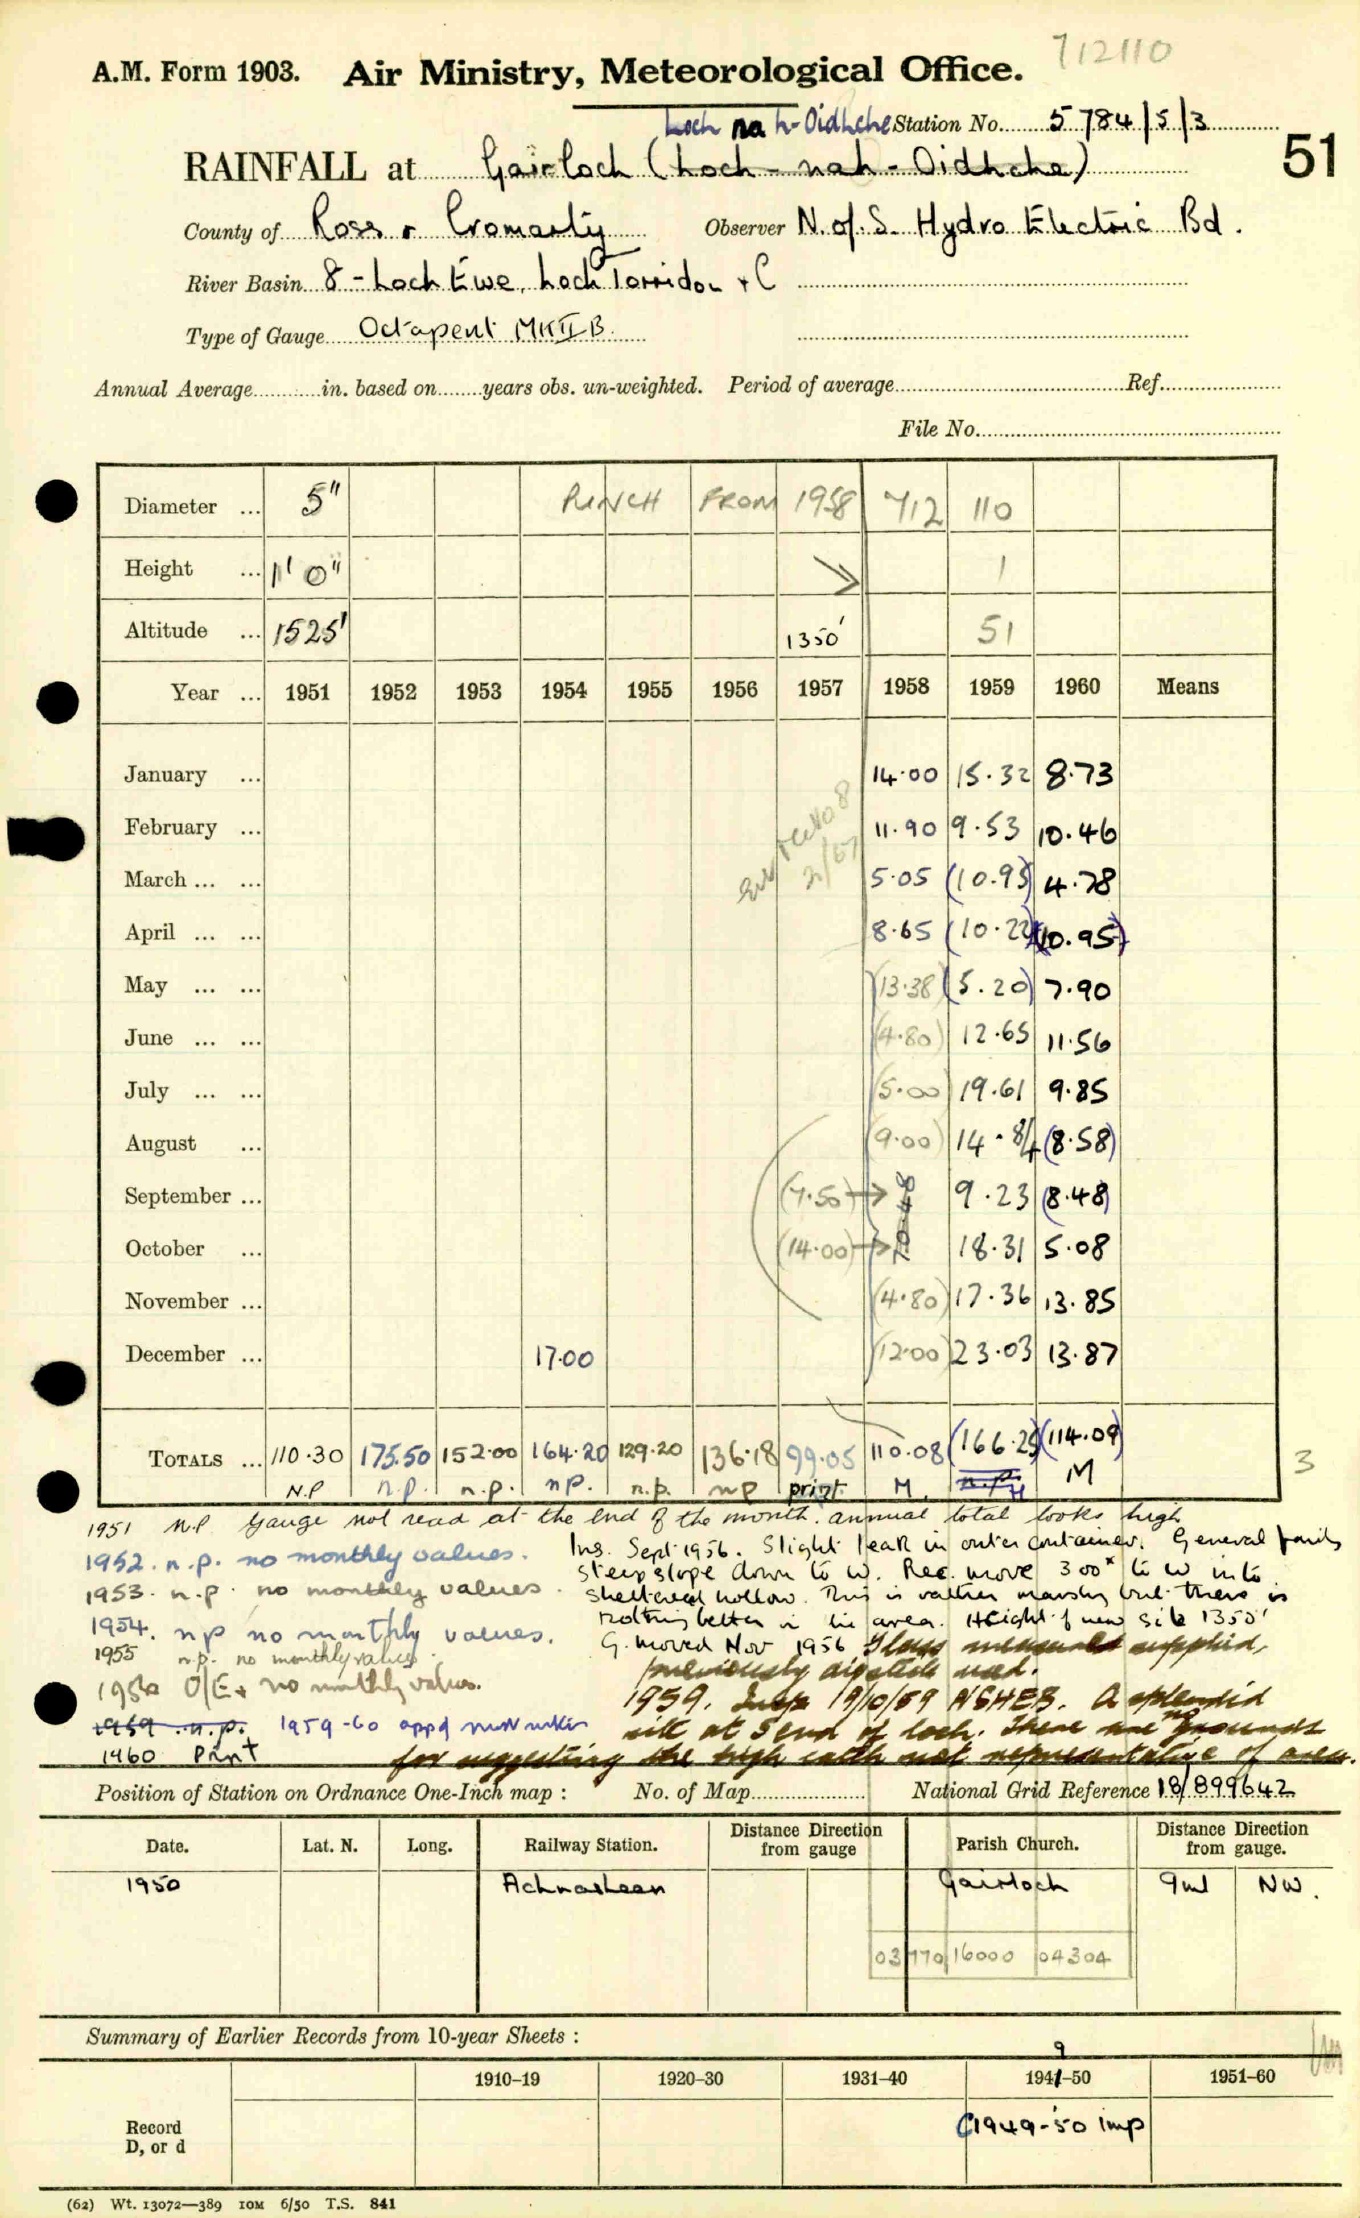 712110
A.M. Form 1903. Air Ministry, Meteorological Office.
Loch na h-Oidhche Station No. 5784/5/3
51
RAINFALL at Gairloch (Loch-nah-Oidhche)
County of Ross & Cromarty Observer N. of S. Hydro Electric Bd.
River Basin 8 - Loch Ewe, Loch Torridon & C
Type of Gauge Octapent MKIIB.
Annual Average in. based on years obs. un-weighted. Period of average Ref.
File No.
Diameter ... 5" PUNCH FROM 1958 712 110
Height ... 1' 0" 1
Altitude ... 1525' 1350' 51
Year ... 1951 1952 1953 1954 1955 1956 1957 1958 1959 1960 Means
January ... 14.00 15.32 8.73
February ... 11.90 9.53 10.46
March ... ... 5.05 (10.93) 4.78
April ... ... 8.65 (10.22) (10.95)
May ... ... (13.38) (5.20) 7.90
June ... ... (4.80) 12.65 11.56
July ... ... (5.00) 19.61 9.85
August ... (9.00) 14.84 (8.58)
September ... (7.50) 70.48 9.23 (8.48)
October ... (14.00) 18.31 5.08
November ... (4.80) 17.36 13.85
December ... 17.00 (12.00) 23.03 13.87
TOTALS ... 110.30 175.50 152.00 164.20 129.20 136.18 99.05 110.08 (166.25) (114.09)
N.P n.p. n.p. np. n.p. np print M. n.p. H M
3
1951 N.P Gauge not read at the end of the month. annual total looks high
1952. n.p. no monthly values.
1953. n.p. no monthly values.
1954. np no monthly values.
1955 n.p. no monthly values.
1956 O/E + no monthly values.
1959 n.p. 1959-60 appd
1960 Print
Ins. Sept 1956. Slight leak in outer container. General
steep slope down to W. Rec. move 300x to W into
sheltered hollow. This is rather marshy but there is
nothing better in the area. Height of new site 1350'
G. moved Nov 1956 Glass measure supplied,
previously dipstick used.
1959. Insp 19/10/59 NSHEB. A splendid
site at S end of loch. There are no grounds
for suggesting the high catch not representative of area.
Position of Station on Ordnance One-Inch map : No. of Map National Grid Reference 18/899642
Date. Lat. N. Long. Railway Station. Distance Direction from gauge Parish Church. Distance Direction from gauge.
1950 Achnasheen Gairloch 9ml NW.
03770 16000 04304
Summary of Earlier Records from 10-year Sheets :
9
1910–19 1920–30 1931–40 1941–50 1951–60
Record
D, or d
(1949-50 imp
(62) Wt. 13072—389 10M 6/50 T.S. 841